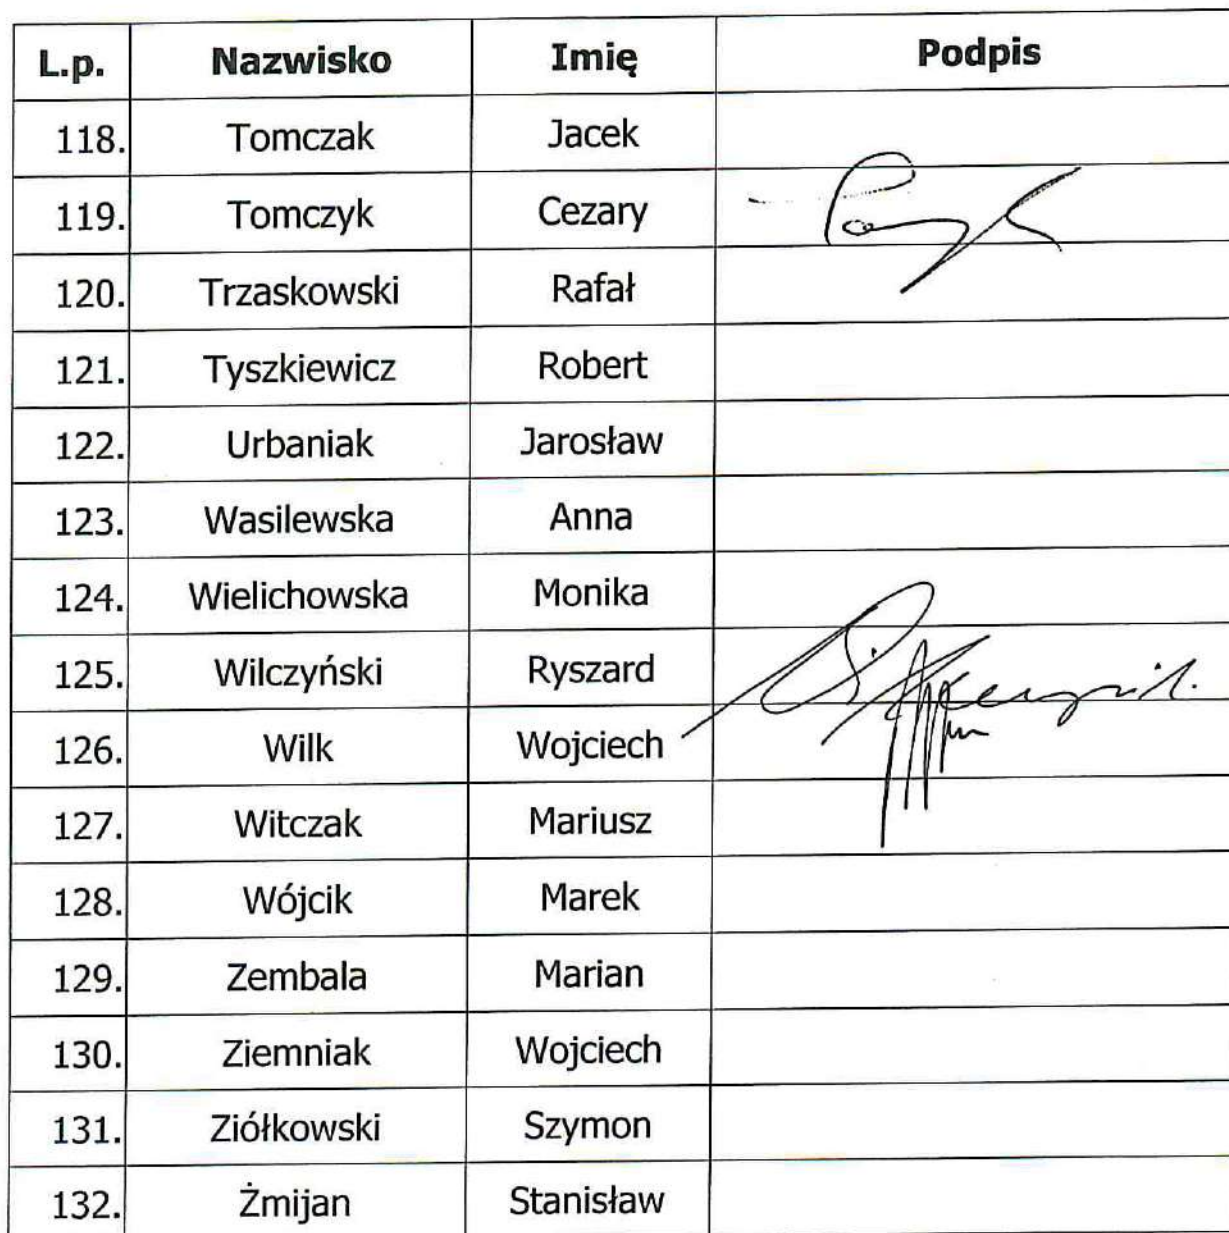 L.p. Nazwisko Imię Podpis
118. Tomczak Jacek
119. Tomczyk Cezary
120. Trzaskowski Rafał
121. Tyszkiewicz Robert
122. Urbaniak Jarosław
123. Wasilewska Anna
124. Wielichowska Monika
125. Wilczyński Ryszard
126. Wilk Wojciech
127. Witczak Mariusz
128. Wójcik Marek
129. Zembala Marian
130. Ziemniak Wojciech
131. Ziółkowski Szymon
132. Żmijan Stanisław